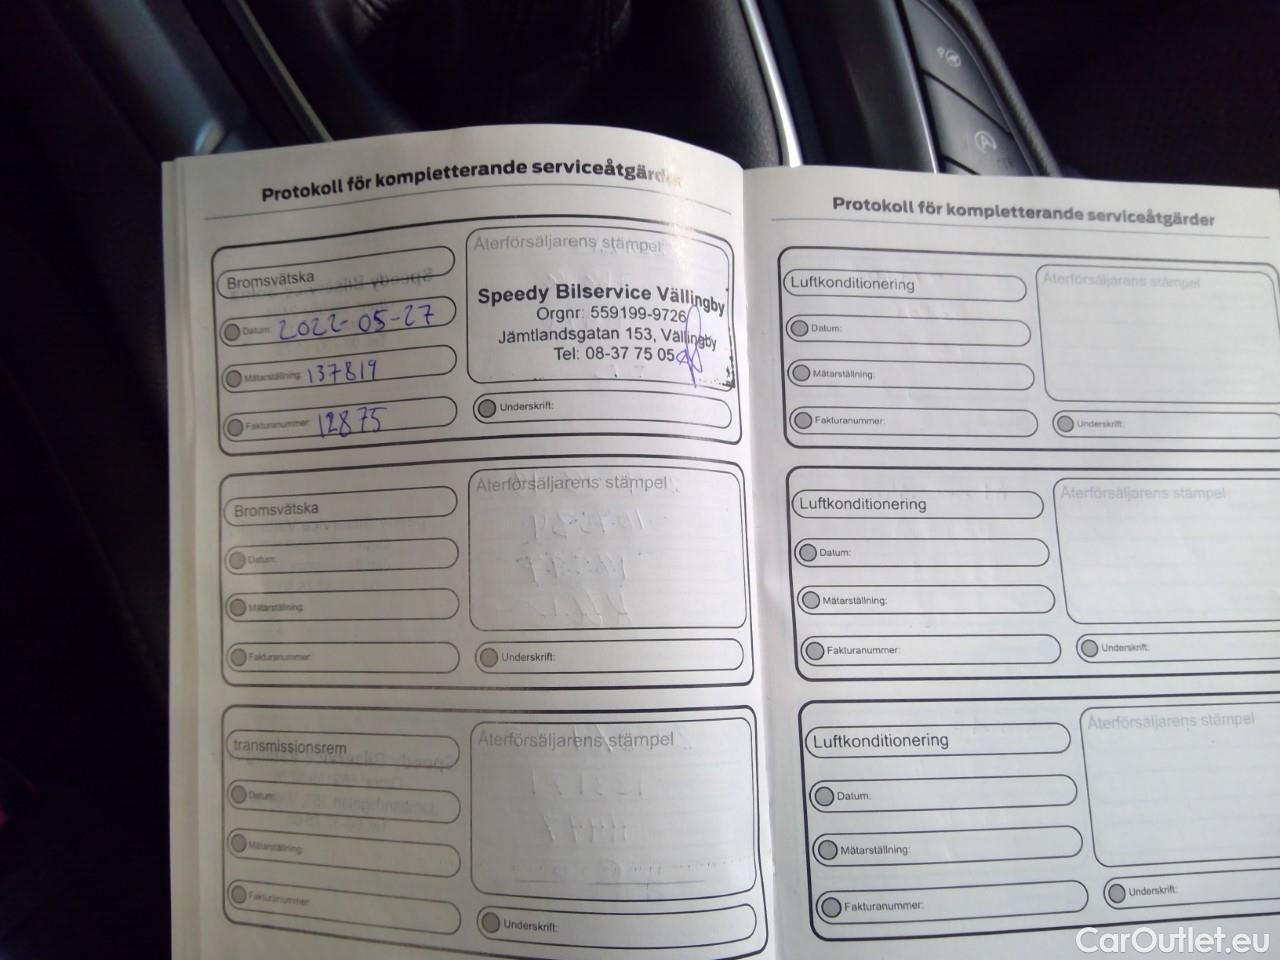 Protokoll för kompletterande serviceåtgärder
Bromsvätska
Datum: 2022-05-27
Mätarställning: 137819
Fakturanummer: 12875
Återförsäljarens stämpel
Speedy Bilservice Vällingby
Orgnr: 559199-9726
Jämtlandsgatan 153, Vällingby
Tel: 08-37 75 05
Underskrift:
Bromsvätska
Datum:
Mätarställning:
Fakturanummer:
Återförsäljarens stämpel
Underskrift:
transmissionsrem
Datum:
Mätarställning:
Fakturanummer:
Återförsäljarens stämpel
Underskrift:
Protokoll för kompletterande serviceåtgärder
Luftkonditionering
Datum:
Mätarställning:
Fakturanummer:
Återförsäljarens stämpel
Underskrift:
Luftkonditionering
Datum:
Mätarställning:
Fakturanummer:
Återförsäljarens stämpel
Underskrift:
Luftkonditionering
Datum:
Mätarställning:
Fakturanummer:
Återförsäljarens stämpel
Underskrift:
CarOutlet.eu